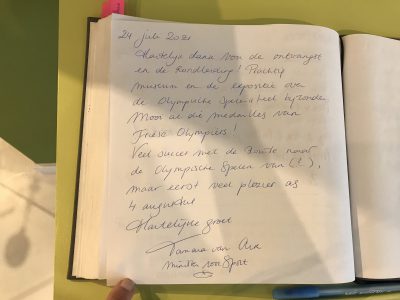 24 juli 2021
Hartelijk dank voor de ontvangst
en de rondleiding! Prachtig
museum en de expositie over
de Olympische Spelen is heel bijzonder.
Mooi al die medailles van
Friese Olympiërs!
Veel succes met de route naar
de Olympische Spelen van (?),
maar eerst veel plezier as
4 augustus
Hartelijke groet
Tamara van Ark
Minister voor Sport